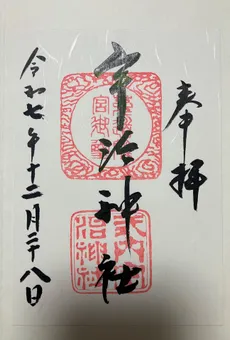 奉拝
宇治神社
令和七年十二月二十八日